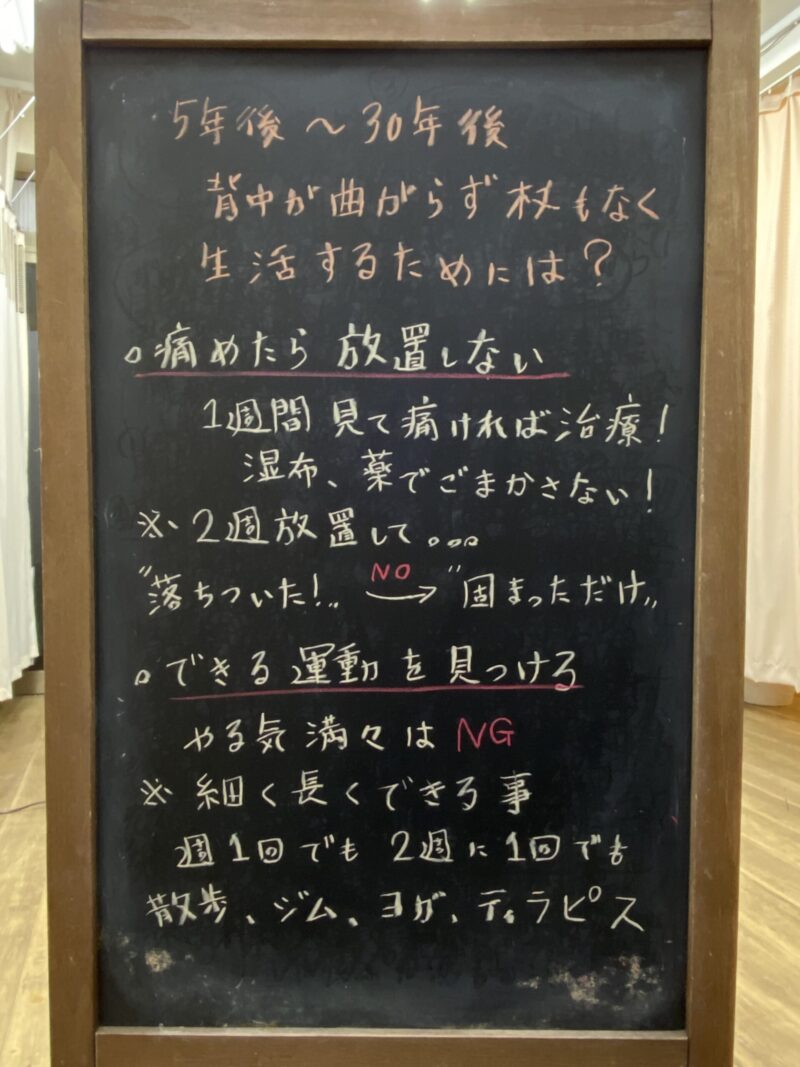 5年後～30年後
背中が曲がらず杖もなく
生活するためには？
○痛めたら放置しない
1週間見て痛ければ治療！
湿布、薬でごまかさない！
※、2週放置して。。。。
"落ちついた！" NO → "固まっただけ"
○できる運動を見つけろ
やる気満々はNG
※細く長くできる事
週1回でも2週に1回でも
散歩、ジム、ヨガ、ティラピス